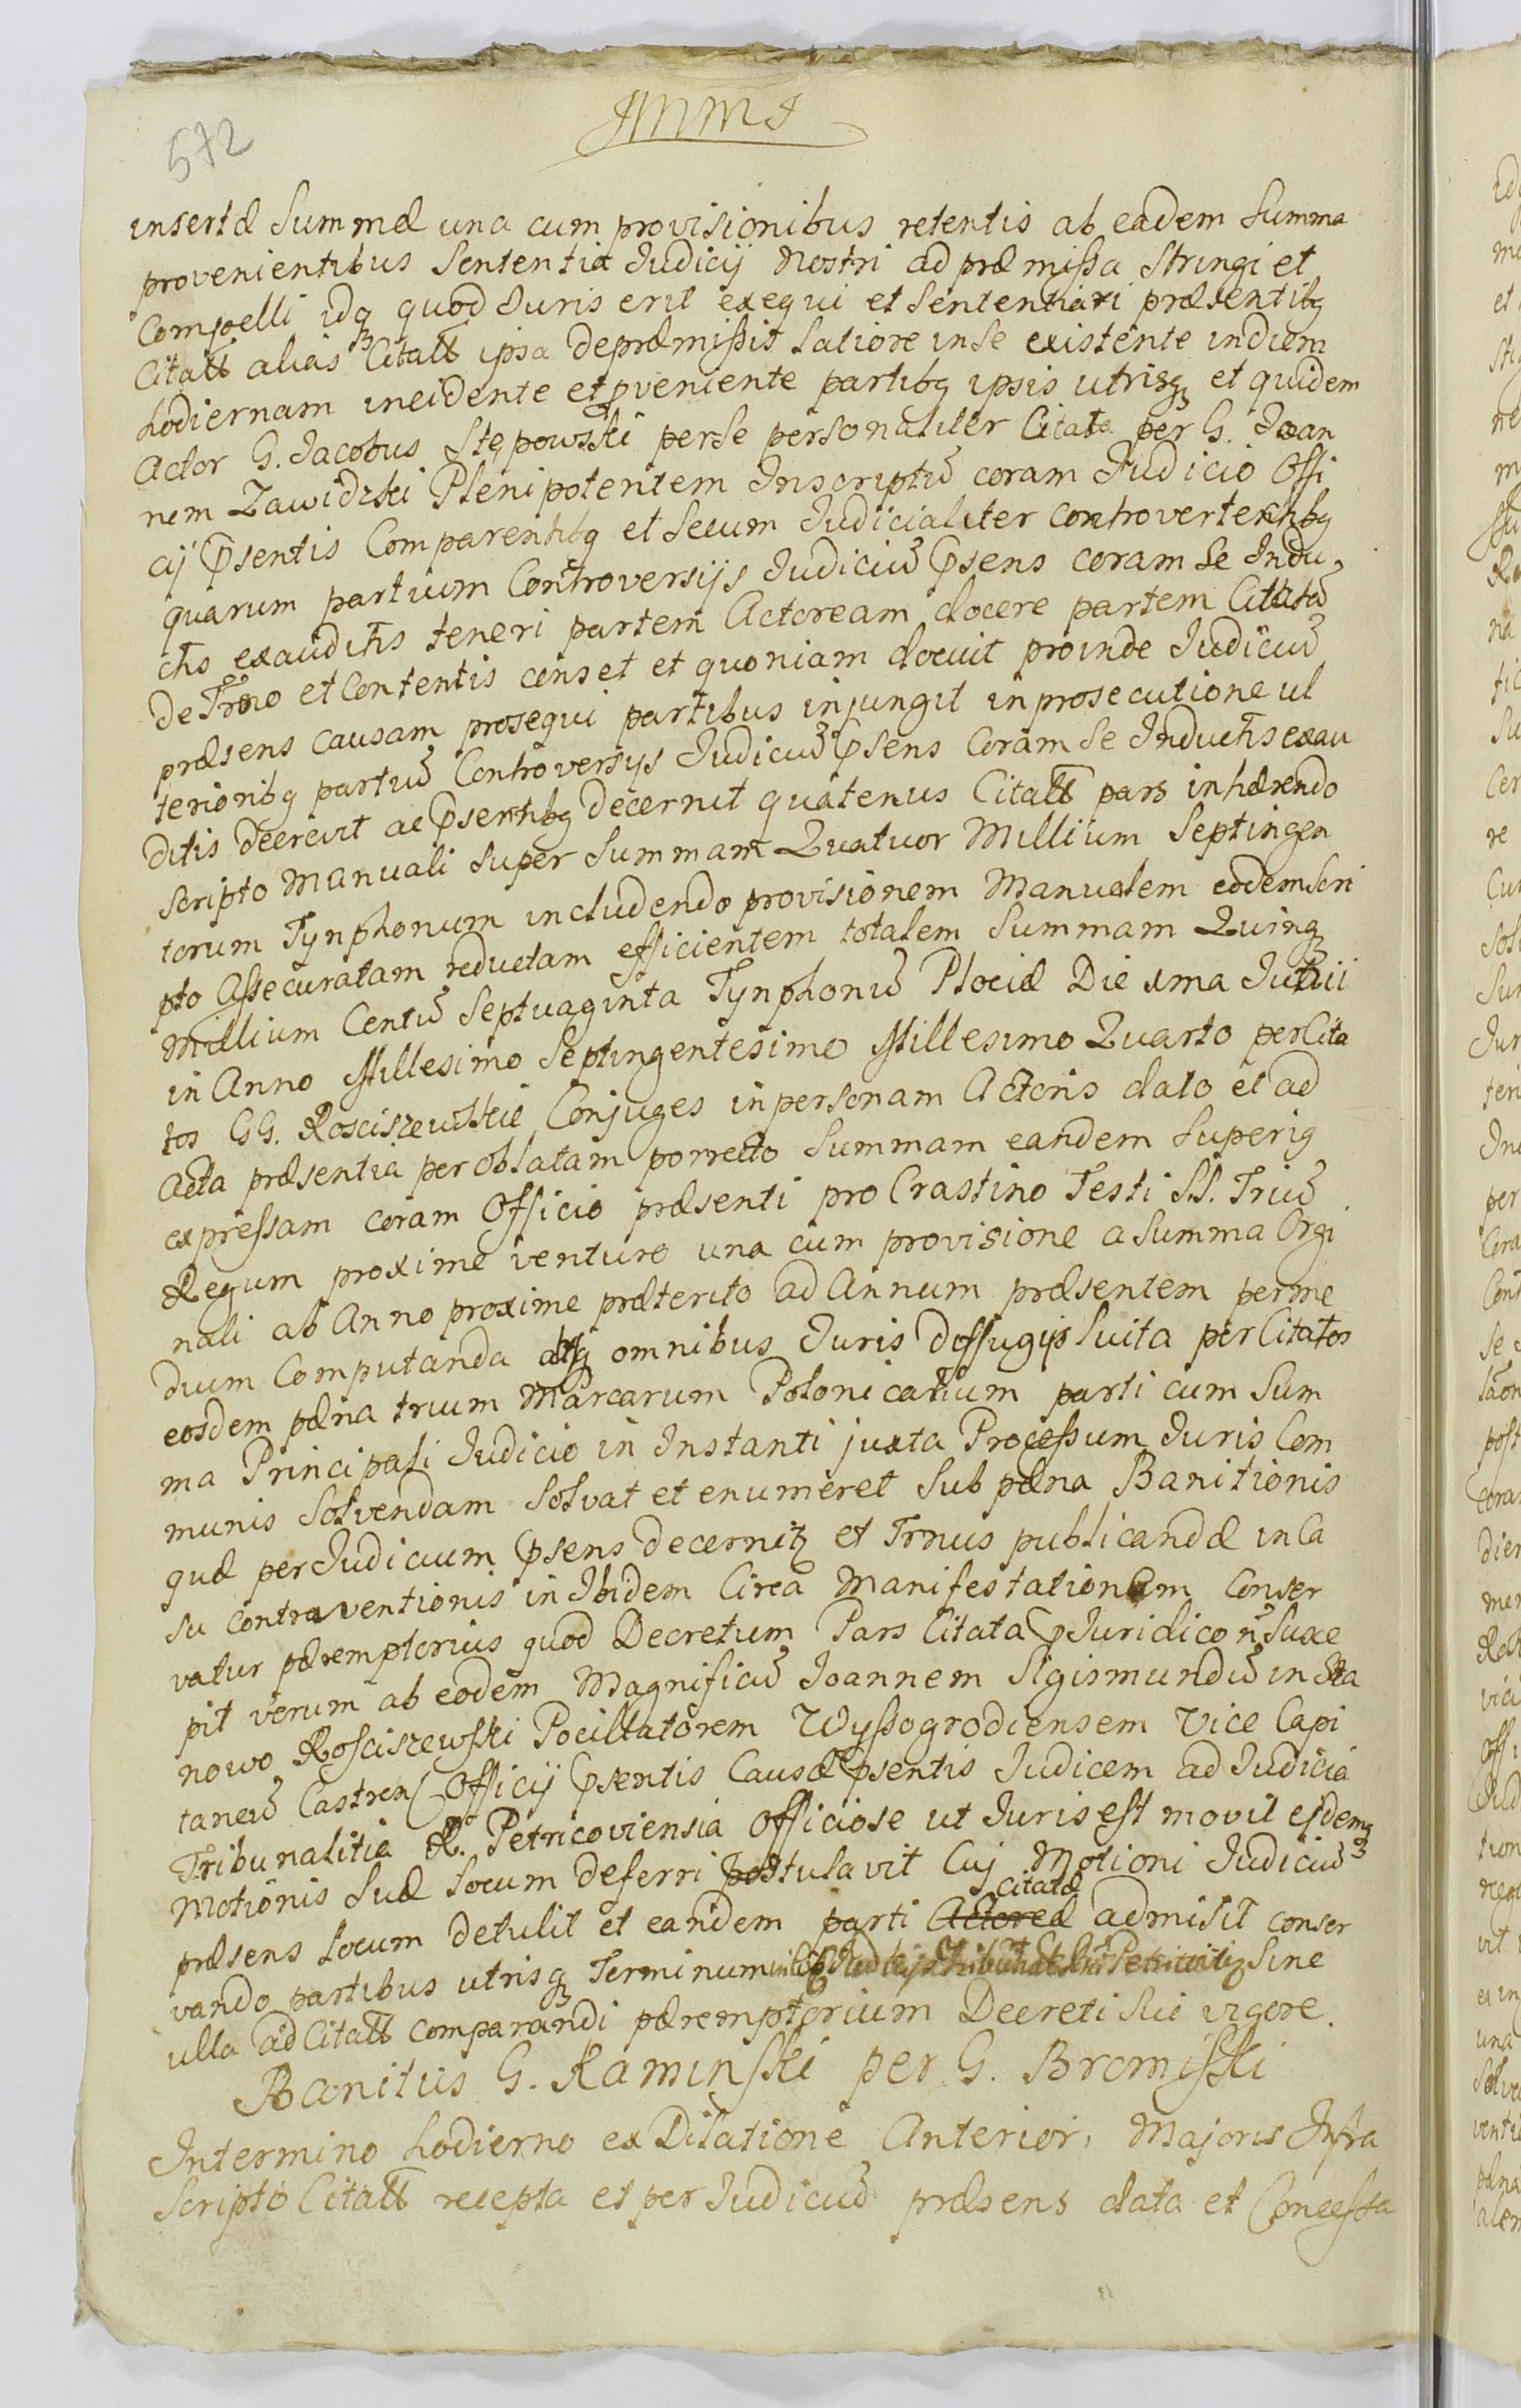 572
insertæ Summæ una cum provisionibus retentis ab eadem Summa
provenientibus Sententia Iudicij Nostri ad præmissa Stringi et
Compelli idq quod Iuris erit exequi et Sententiari præsentibq
Citatt alias Citatt ipsa depræmissis Latiore inse existente indiem
hodiernam incidente et pveniente partibq ipsis utrisq et quidem
Actor G. Iacobus Stępowski perse personaliter Citata per G. Ioan
nem Zawidzki Plenipotentem Inscriptū coram Iudicio Offi
cij Psentis Comparentibq et Secum Iudicialiter controvertentibq
quarum partium Controversijs Iudiciū Psens coram Se Indu
ctis exauditis teneri partem Actoream docere partem Citatā
de Trno et Contentis censet et quoniam docuit proinde Iudiciū
præsens causam prosequi partibus injungit inprosecutione ul
terioribq partiū Controversijs Iudiciū Psens Coram Se Inductis exau
ditis decrevit ac Psentibq decernit quatenus Citatt pars inhærendo
scripto Manuali super Summam Quatuor Millium Septingen
torum Tynphonum includendo provisionem Manualem eodem Scri
pto Assecuratam reductam efficientem totalem Summam Quinq
Millium Centū Septuaginta Tynphonū Plociæ Die xma Iunii
in Anno Millesimo Septingentesimo Millesimo Quarto per Cita
tos GG. Rosciszewskie Conjuges inpersonam Actoris dato et ad
Acta præsentia per oblatam porrecto Summam eandem Superiq
expressam coram Officio præsenti pro Crastino Festi SS. Triū
Regum proxime venturo una cum provisione a Summa Orgi
nali ab Anno proxime præterito ad Annum præsentem perme
dium Computanda absq omnibus Iuris diffugijs Luita per Citatos
eosdem pæna trium Marcarum Polonicalium parti cum Sum
ma Principali Iudicio in Instanti juxta Processum Iuris Com
munis Solvendam Solvat et enumeret Sub pæna Banitionis
quæ per Iudicium Psens decernitz et Trnus publicandæ inCa
su contraventionis in Ibidem Circa Manifestationem Conser
vatur pæremptorius quod Decretum Pars Citata P Iuridico ñ Susce
pit verum ab eodem Magnificū Ioannem Sigismundū in Sta
nowo Rosciszewski Pocillatorem Wyssogrodiensem Vice Capi
taneū Castren Officij Psentis Causæ Psentis Iudicem ad Iudicia
Tribunalitia R. Petricoviensia Officiose ut Iuris est movit ejdemq
Motionis Suæ Locum deferri postulavit Cuj Motioni Iudiciū
præsens Locum detulit et eandem parti Actoreæ Citatæ admisit conser
vando partibus utrisq Terminum Sine
ulla ad Citatt comparandi pæremptorium Decreti Sui vigore.
Banitus G. Kaminski per G. Bromiski
Intermino hodierno ex Dilatione Anterior, Majoris Infra
Scripto Citatt recepta et per Iudiciū præsens data et Concessa